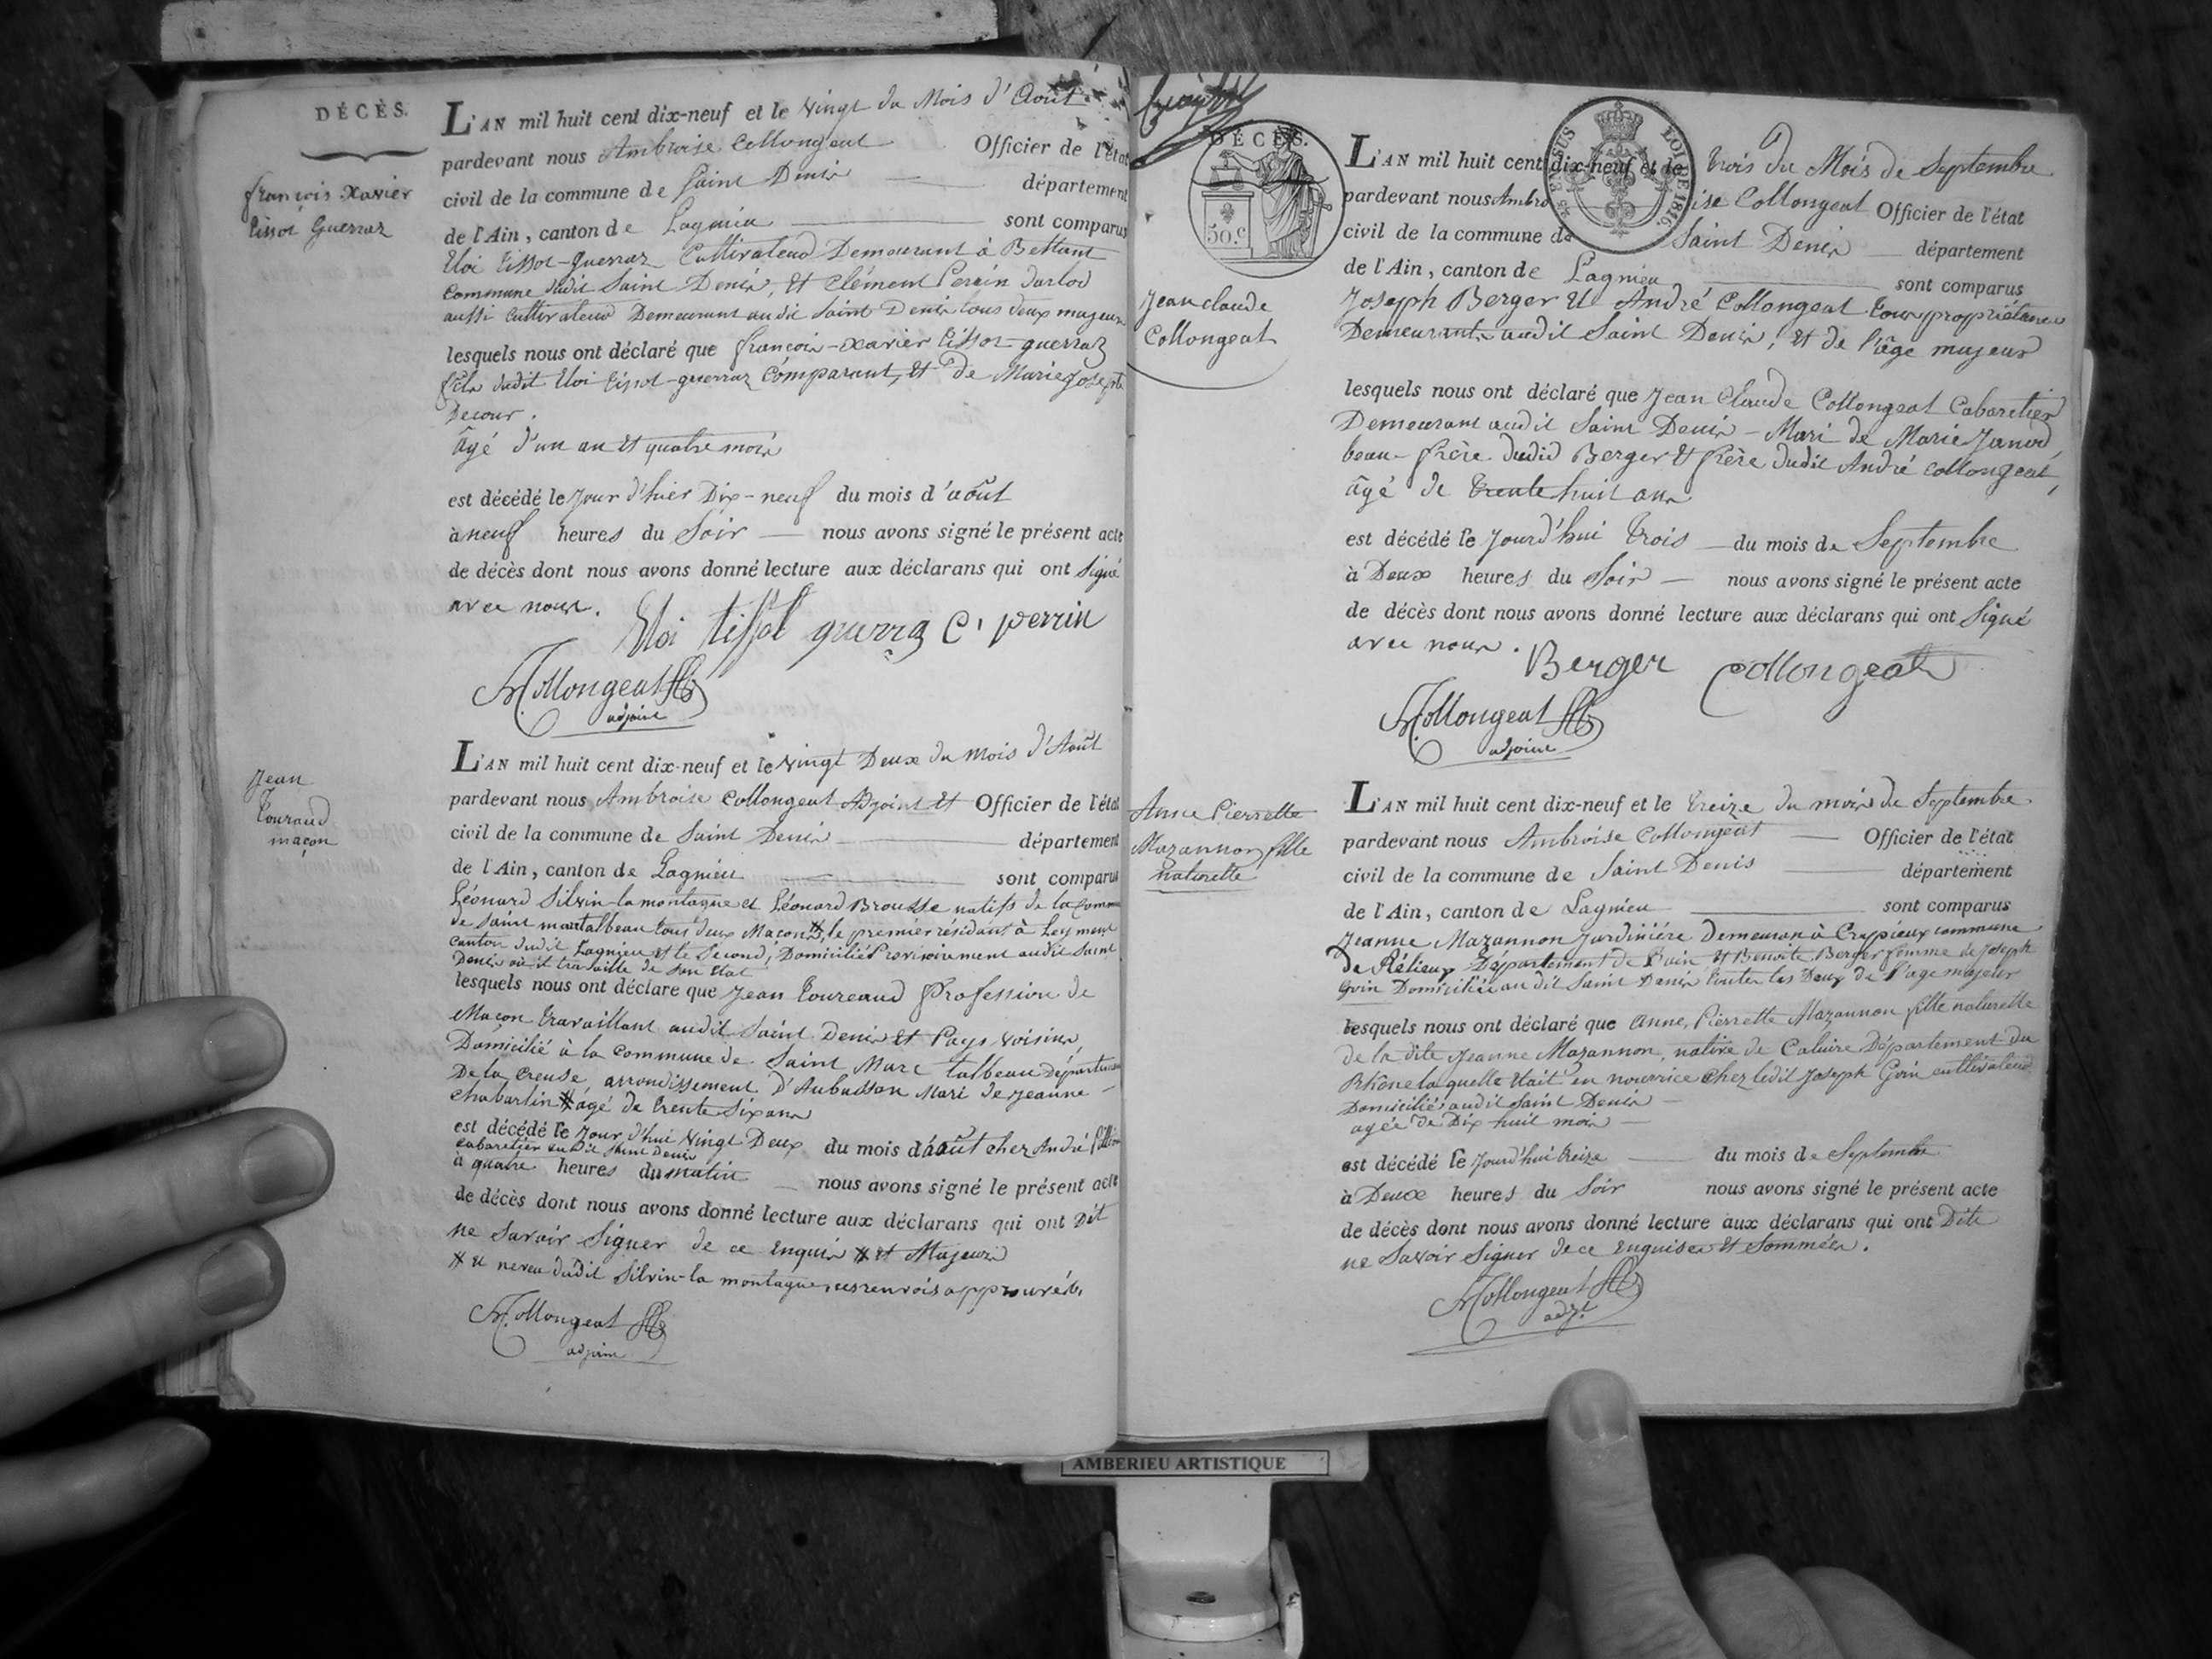 DÉCÈS.
françois Xavier
tissot Guerraz
L'AN mil huit cent dix-neuf et le vingt du Mois d'Août
pardevant nous Ambroise Collongeat Officier de l'état
civil de la commune de Saint Denis département
de l'Ain, canton de Lagnieu sont comparus
Eloi tissot-guerraz Cultivateur Demeurant à Bettant
Commune dudit Saint Denis, et Clément Perrin
aussi cultivateur Demeurant audit Saint Denis tous deux majeurs
lesquels nous ont déclaré que françois-xavier tissot-guerraz
fils dudit Eloi tissot-guerraz Comparant, et de Marie Josephte
Decour.
âgé d'un an et quatre mois
est décédé le Jour d'hier Dix-neuf du mois d'août
à neuf heures du Soir nous avons signé le présent acte
de décès dont nous avons donné lecture aux déclarans qui ont Signé
avec nous.
Eloi tissot guerra C. perrin
Collongeat
adjoint
Jean
Touraud
maçon
L'AN mil huit cent dix-neuf et le vingt Deux du mois d'Août
pardevant nous Ambroise Collongeat Adjoint et Officier de l'état
civil de la commune de Saint Denis département
de l'Ain, canton de Lagnieu sont comparus
Léonard Silvin-la montagne et Léonard Brousse natifs de la Commune
de Saint martalbeau tous deux Macons, le premier résidant à Leyment
Canton dudit Lagnieu et le Second, Domicilié Provisoirement audit Saint
Denis où il travaille de son Etat
lesquels nous ont déclaré que Jean Toureaud Profession de
Maçon Travaillant audit Saint Denis et Pays voisins,
Domicilié à la Commune de Saint Marc talbeau Département
De la Creuse, arrondissement d'Aubusson Mari de Jeanne
Chabartin # agé de trente Six ans
est décédé le Jour d'hui vingt Deux du mois d'août chez André
Cabaretier audit Saint Denis
à quatre heures du matin nous avons signé le présent acte
de décès dont nous avons donné lecture aux déclarans qui ont Dit
ne Savoir Signer de ce Enquis # et Majeurs
# et neveu dudit Silvin-la montagne, ces renvois approuvés.
Collongeat
adjoint
DÉCÈS.
50.c
EN SUS
LOI DE 1816.
Jean claude
Collongeat
L'AN mil huit cent dix-neuf et le trois du Mois de Septembre
pardevant nous Ambroise Collongeat Officier de l'état
civil de la commune de Saint Denis département
de l'Ain, canton de Lagnieu sont comparus
Joseph Berger et André Collongeat tous propriétaires
Demeurants audit Saint Denis, et de l'âge majeur
lesquels nous ont déclaré que Jean Claude Collongeat Cabaretier
Demeurant audit Saint Denis - Mari de Marie Janod,
beau-frère dudid Berger et frère dudit André Collongeat,
âgé de trente huit ans
est décédé le Jourd'hui trois du mois de Septembre
à Deux heures du Soir nous avons signé le présent acte
de décès dont nous avons donné lecture aux déclarans qui ont Signé
avec nous.
Berger Collongeat
Collongeat
adjoint
Anne Pierrette
Mazannon fille
naturelle
L'AN mil huit cent dix-neuf et le treize du mois de Septembre
pardevant nous Ambroise Collongeat Officier de l'état
civil de la commune de Saint Denis département
de l'Ain, canton de Lagnieu sont comparus
Jeanne Mazannon Jardinière Demeuran à Crepieux commune
de Rélieux Département de l'ain et Benoite Berger femme de Joseph
Goin Domiciliée audit Saint Denis toutes les Deux de l'age majeur
lesquels nous ont déclaré que anne, Pierrette Mazannon fille naturelle
de la dite Jeanne Mazannon, native de Caluire Département du
Rhône laquelle était en nourrice chez ledit Joseph Goin cultivateur
Domicilié audit Saint Denis
agée de Dix huit mois
est décédé le Jourd'hui treize du mois de Septembre
à Deux heures du Soir nous avons signé le présent acte
de décès dont nous avons donné lecture aux déclarans qui ont Dite
ne Savoir Signer de ce Enquises et Sommées.
Collongeat
adjt
AMBERIEU ARTISTIQUE